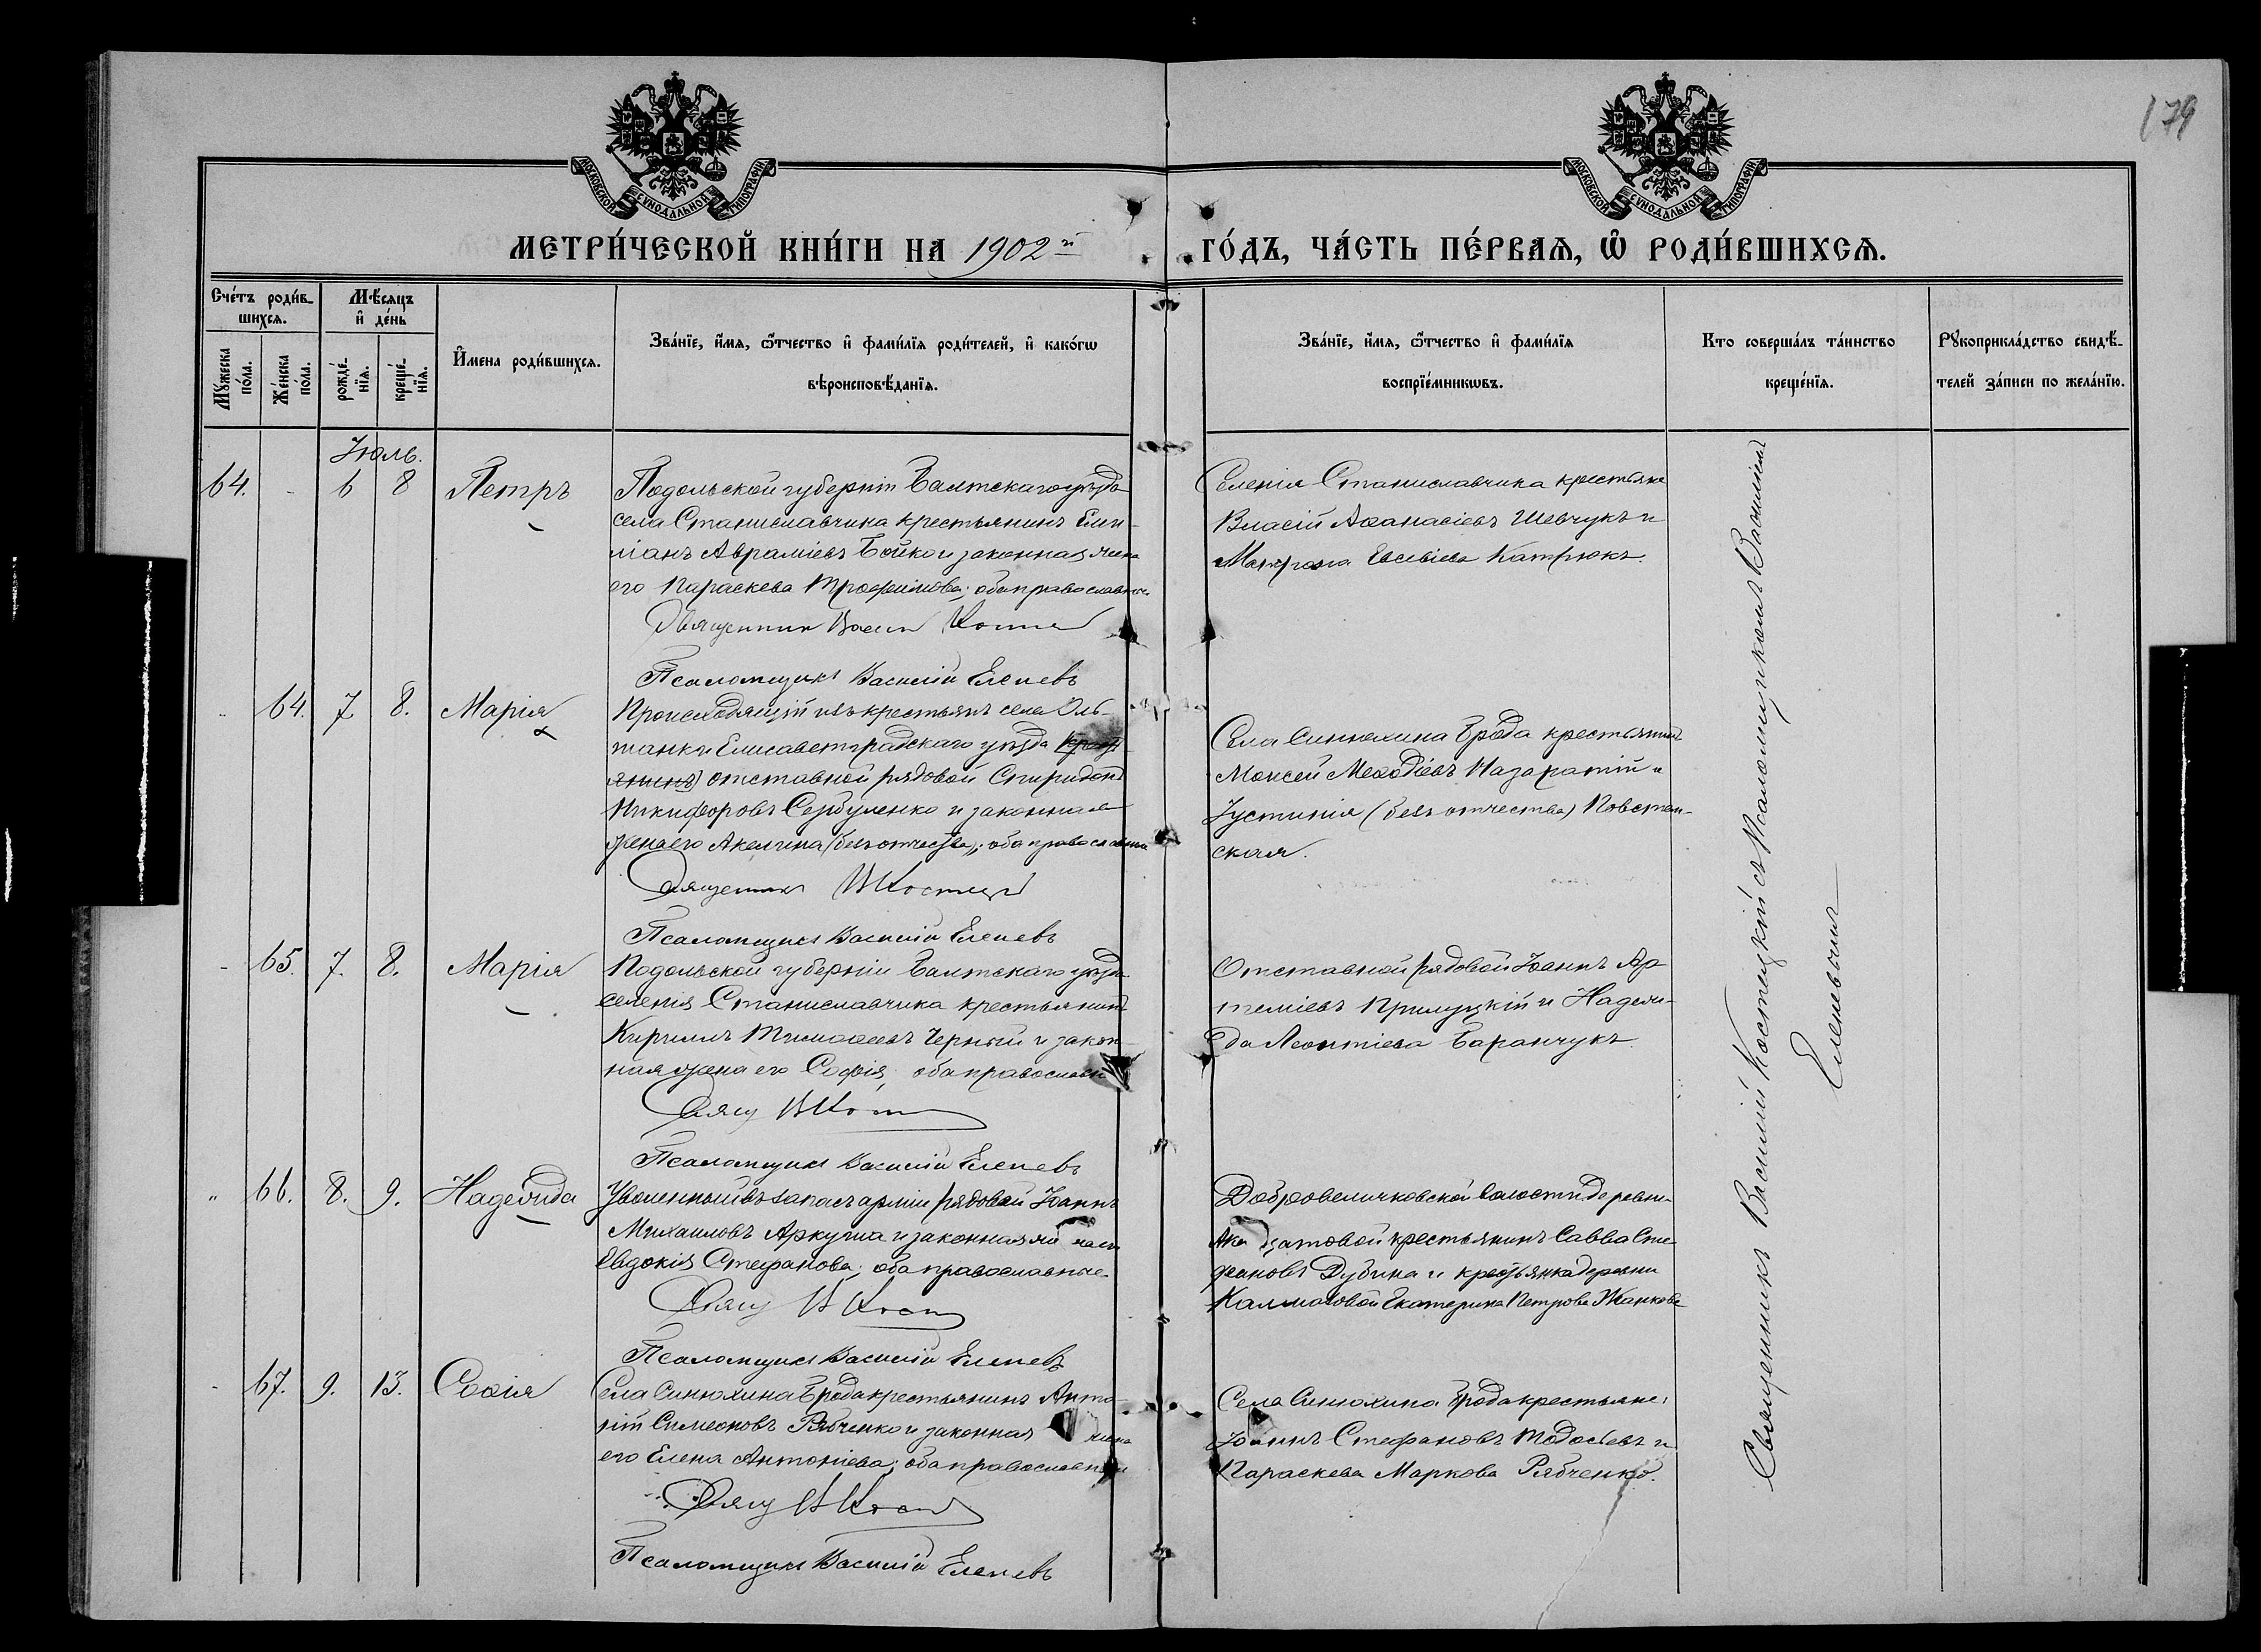 179
МОСКОВСКОЙ СѴНОДАЛЬНОЙ ТИПОГРАФІИ
МОСКОВСКОЙ СѴНОДАЛЬНОЙ ТИПОГРАФІИ
МЕТРИ́ЧЕСКОЙ КНИ́ГИ НА 1902й ГО́ДЪ, ЧА́СТЬ ПЕ́РВАѦ, Ѡ҆ РОДИ́ВШИХСѦ.
Счéтъ роди́в-
шихсѧ.
Мꙋ́жеска по́ла.
Же́нска по́ла.
Мѣ́сѧцъ
и҆ де́нь
рожде́-
нїѧ.
креще́-
нїѧ.
И҆́мена роди́вшихсѧ.
Зва́нїе, и҆́мѧ, ѻ҆́тчество и҆ фами́лїѧ роди́телей, и҆ како́гѡ
вѣроисповѣ́данїѧ.
Зва́нїе, и҆́мѧ, ѻ҆́тчество и҆ фами́лїѧ
воспрїе́мникѡвъ.
Кто соверша́лъ та́инство
креще́нїѧ.
Рꙋкоприкла́дство свидѣ́-
телей за́писи по жела́нїю.
Іюль.
64. - 6 8 Петръ
Подольской губерніи Балтскаго уѣзда
села Станиславчика крестьянинъ Еми-
ліанъ Авраміевъ Бойко и законная жена
его Параскева Трофимова; оба православные.
Священник
Псаломщикъ Василій Елепевъ
Селенія Станиславчика крестьяне
Власій Аѳанасіевъ Шевчукъ и
Матрона Евсевіева Катрюкъ.
- 64. 7 8. Марія
Происходящій изъ крестьянъ села Оль-
шанки Елисаветградскаго уѣзда
отставной рядовой Спиридонъ
Никифоровъ Сербуленко и законная
жена его Акелина (безъ отчества); оба православные
Священник В Костецкій
Псаломщикъ Василій Елепевъ
Села Синюхина Брода крестьянинъ
Моисей Меѳодіевъ Назаратій и
Іустинія (безъ отчества) Повстян-
ская.
- 65. 7. 8. Марія
Подольской губерніи Балтскаго уѣзда
селенія Станиславчика крестьянинъ
Кириллъ Тимоѳеевъ Черный и закон-
ная жена его Софія, оба православны
Свящ
Псаломщикъ Василій Елепевъ
Отставной рядовой Іоаннъ Ар-
теміевъ Прилуцкій и Надеж-
да Леонтіева Баранчукъ
" 66. 8. 9. Надежда
Уволенный въ запасъ арміи рядовой Іоаннъ
Михаиловъ Аркуша и законная жена его
Евдокія Стефанова; оба православные
Свящ
Псаломщикъ Василій Елепевъ
Добровеличковской волости деревни
крестьянинъ Савва Сте-
фановъ Дубина и крестьянка деревни
Калмазовой Екатерина Петрова Жанкова
- 67. 9. 13. Софія
Села Синюхина Брода крестьянинъ Анто-
ній Симеоновъ Рябченко и законная жена
его Елена Антоніева; оба православные
Свящ
Псаломщикъ Василій Елепевъ
Села Синюхина Брода крестьяне:
Іоаннъ Стефановъ Тодосіевъ и
Параскева Маркова Рябченко.
Священникъ Василій Костецкій съ Псаломщикомъ Василіемъ
Елепевымъ